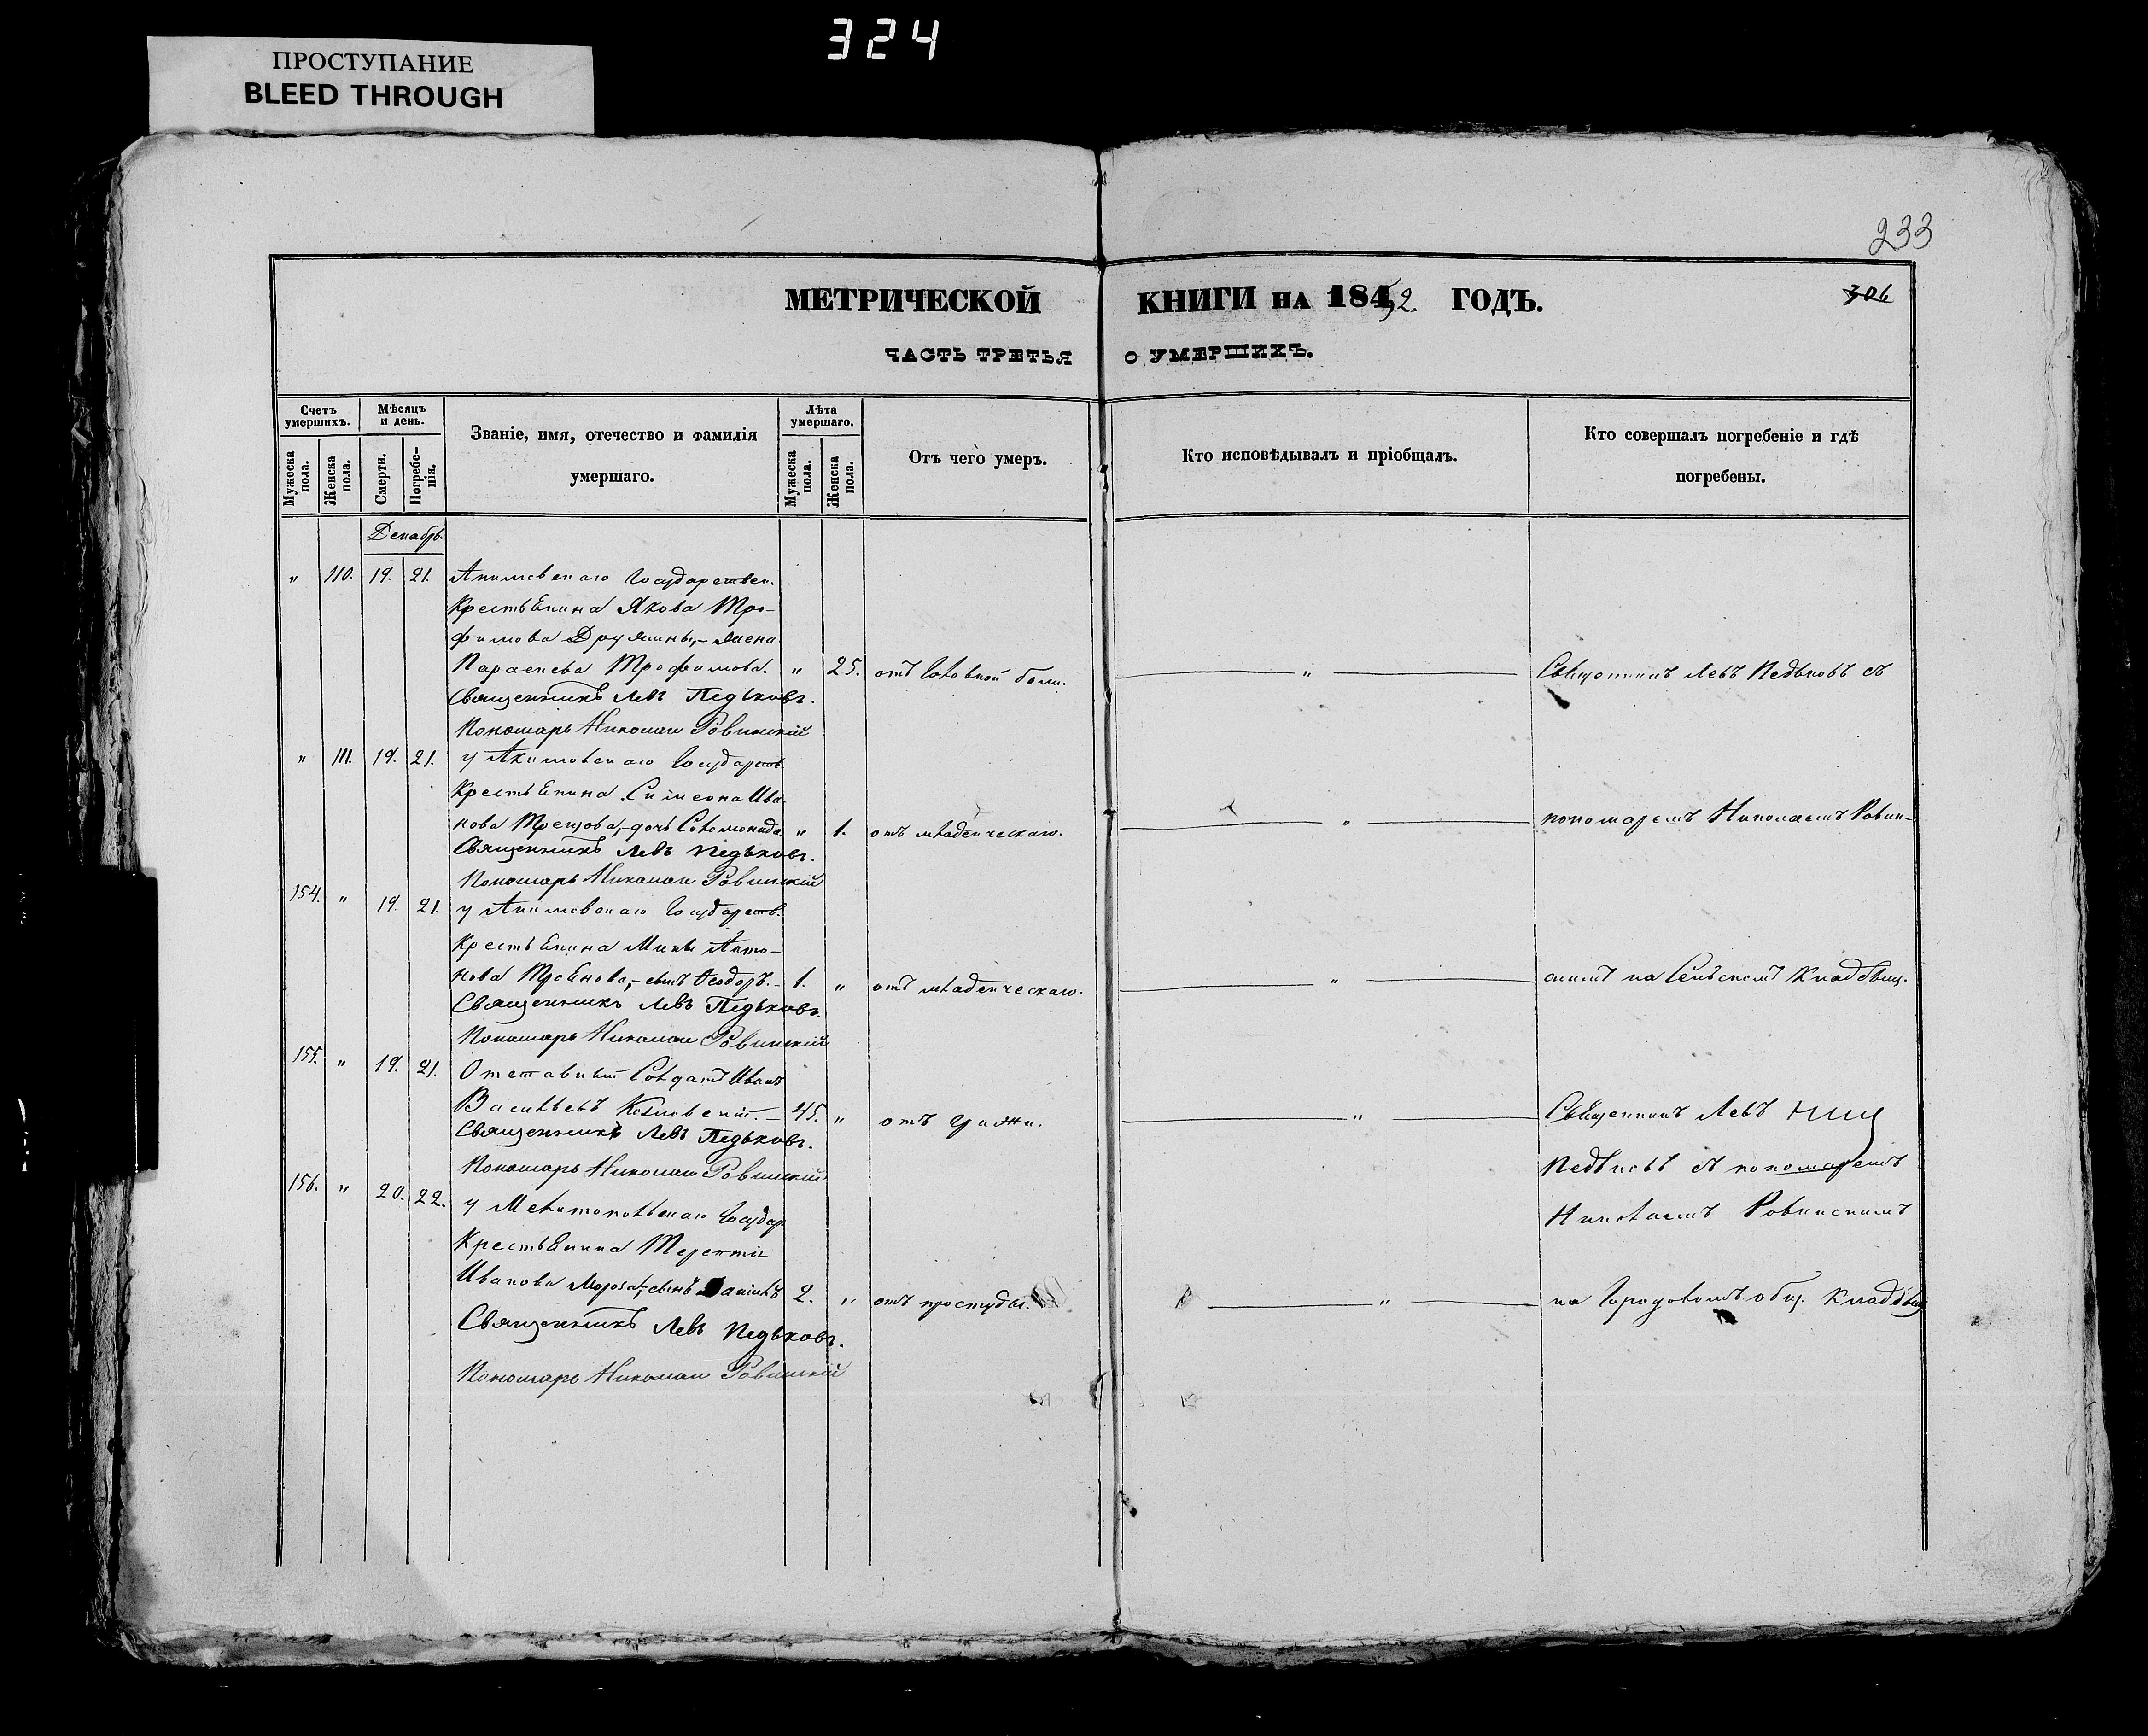 324
ПРОСТУПАНИЕ
BLEED THROUGH
233
МЕТРИЧЕСКОЙ КНИГИ НА 1852 ГОДЪ.
306
ЧАСТЬ ТРЕТЬЯ О УМЕРШИХЪ.
Счетъ умершихъ.
Мужеска пола.
Женска пола.
Мѣсяцъ и день.
Смерти.
Погребе-нія.
Званіе, имя, отечество и фамилія умершаго.
Лѣта умершаго.
Мужеска пола.
Женска пола.
Отъ чего умеръ.
Кто исповѣдывалъ и пріобщалъ.
Кто совершалъ погребеніе и гдѣ погребены.
Декабрь
" 110. 19. 21. Акимовскаго Государствен.
Крестьянина Якова Тро-
фимова Дружины,- жена
Параскева Трофимова. " 25. отъ головной боли. " Священникъ Левъ Педьковъ съ
Священникъ Левъ Педьковъ.
Пономарь Николай Ровинскій
" 111. 19. 21. у Акимовскаго Государств
Крестьянина Симеона Ива-
нова Трещова,- дочь Соломонида " 1. отъ младенческаго. " пономаремъ Николаемъ Ровин-
Священникъ Левъ Педьковъ.
Пономарь Николай Ровинскій
154. " 19. 21. у Акимовскаго Государств.
Крестьянина Мины Анто-
нова сынъ Ѳеодоръ.- 1. " отъ младенческаго. " скимъ на Сельскомъ Кладбищ.
Священникъ Левъ Педьковъ.
Пономарь Николай Ровинскій
155. " 19. 21. Отставный Солдатъ Иванъ
Васильевъ 45. " отъ " Священникъ Левъ
Священникъ Левъ Педьковъ.
Пономарь Николай Ровинскій
Педьковъ съ пономаремъ
156. " 20. 22. у Мелитопольскаго Государ
Николаемъ Ровинскимъ
Крестьянина Терентія
Иванова Мороза,- сынъ Даніилъ 2. " отъ простуды. " на Городовомъ общ. Кладбищ
Священникъ Левъ Педьковъ.
Пономарь Николай Ровинскій